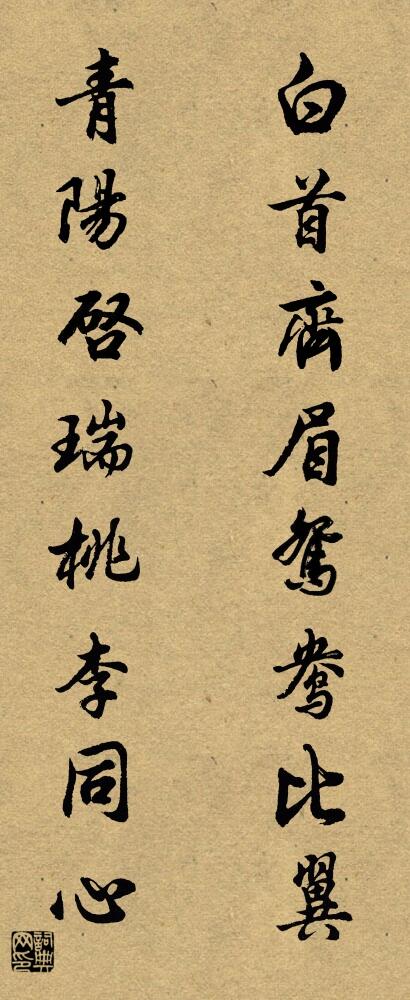 白首齊眉鴛鴦比翼
青陽啓瑞桃李同心